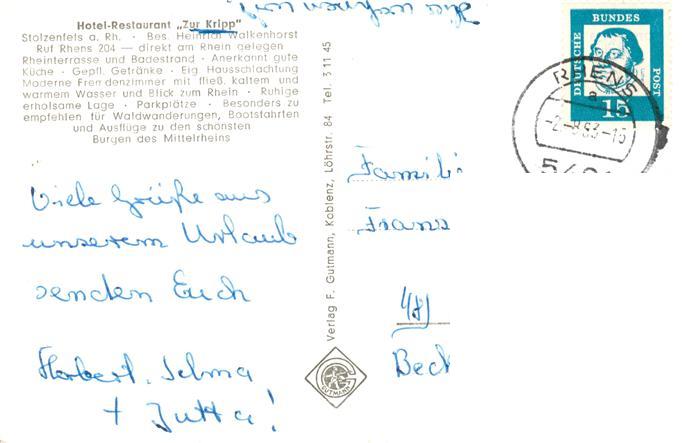 Hotel-Restaurant „Zur Kripp“
Stolzenfels a. Rh. · Bes. Heinrich Walkenhorst
Ruf Rhens 204 — direkt am Rhein gelegen
Rheinterrasse und Badestrand · Anerkannt gute
Küche · Gepfl. Getränke · Eig Hausschlachtung
Moderne Fremdenzimmer mit fließ. kaltem und
warmem Wasser und Blick zum Rhein · Ruhige
erholsame Lage · Parkplätze · Besonders zu
empfehlen für Waldwanderungen, Bootsfahrten
und Ausflüge zu den schönsten
Burgen des Mittelrheins
Viele Grüße aus
unserem Urlaub
senden Euch
Herbert, Selma
+ Jutta!
Verlag F. Gutmann, Koblenz, Löhrstr. 84 Tel. 3 11 45
GUTMANN
Hier wohnen wir
DEUTSCHE BUNDES POST
15
RHENS
a
-2.-8.63-15
Famili
Franz
Beck